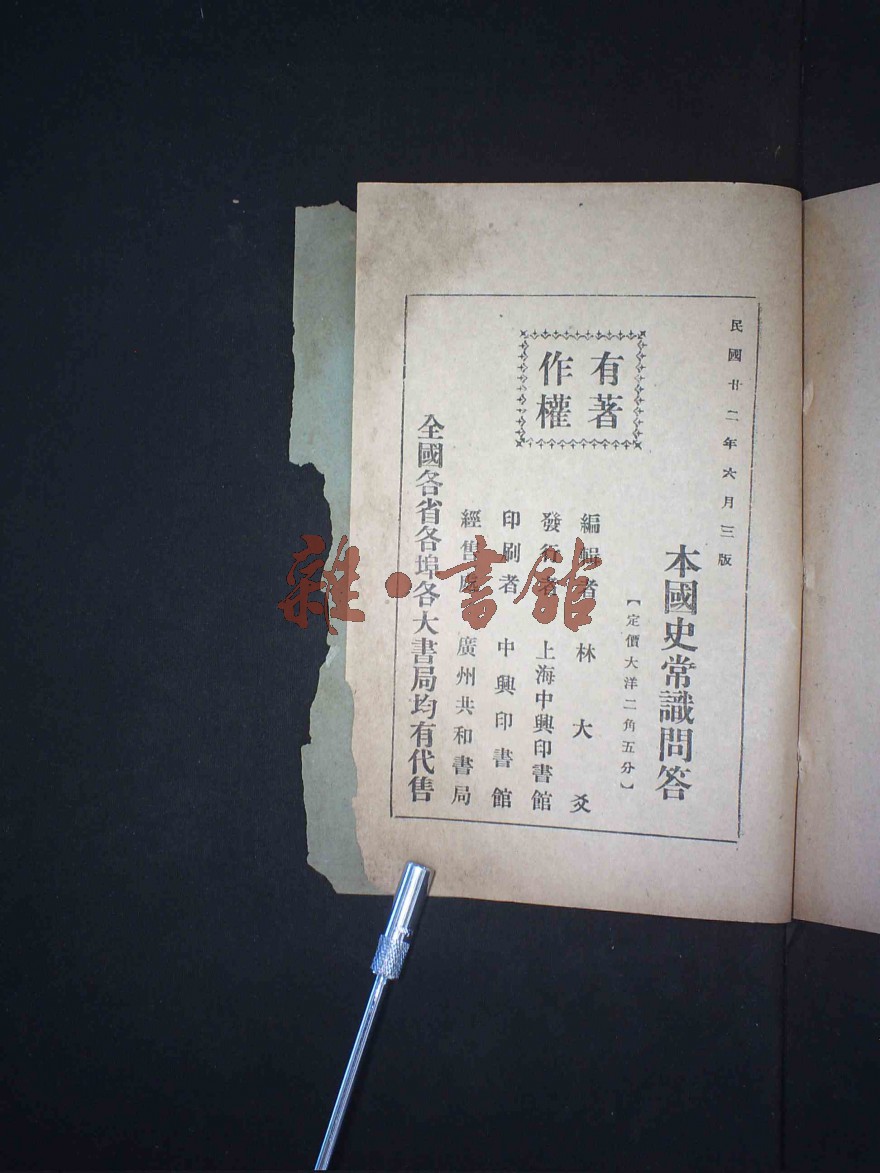 民國廿二年六月三版
本國史常識問答
【定價大洋二角五分】
有著
作權
編輯者 林大爻
發行者 上海中興印書館
印刷者 中興印書館
經售處 廣州共和書局
全國各省各埠各大書局均有代售
雜·書館